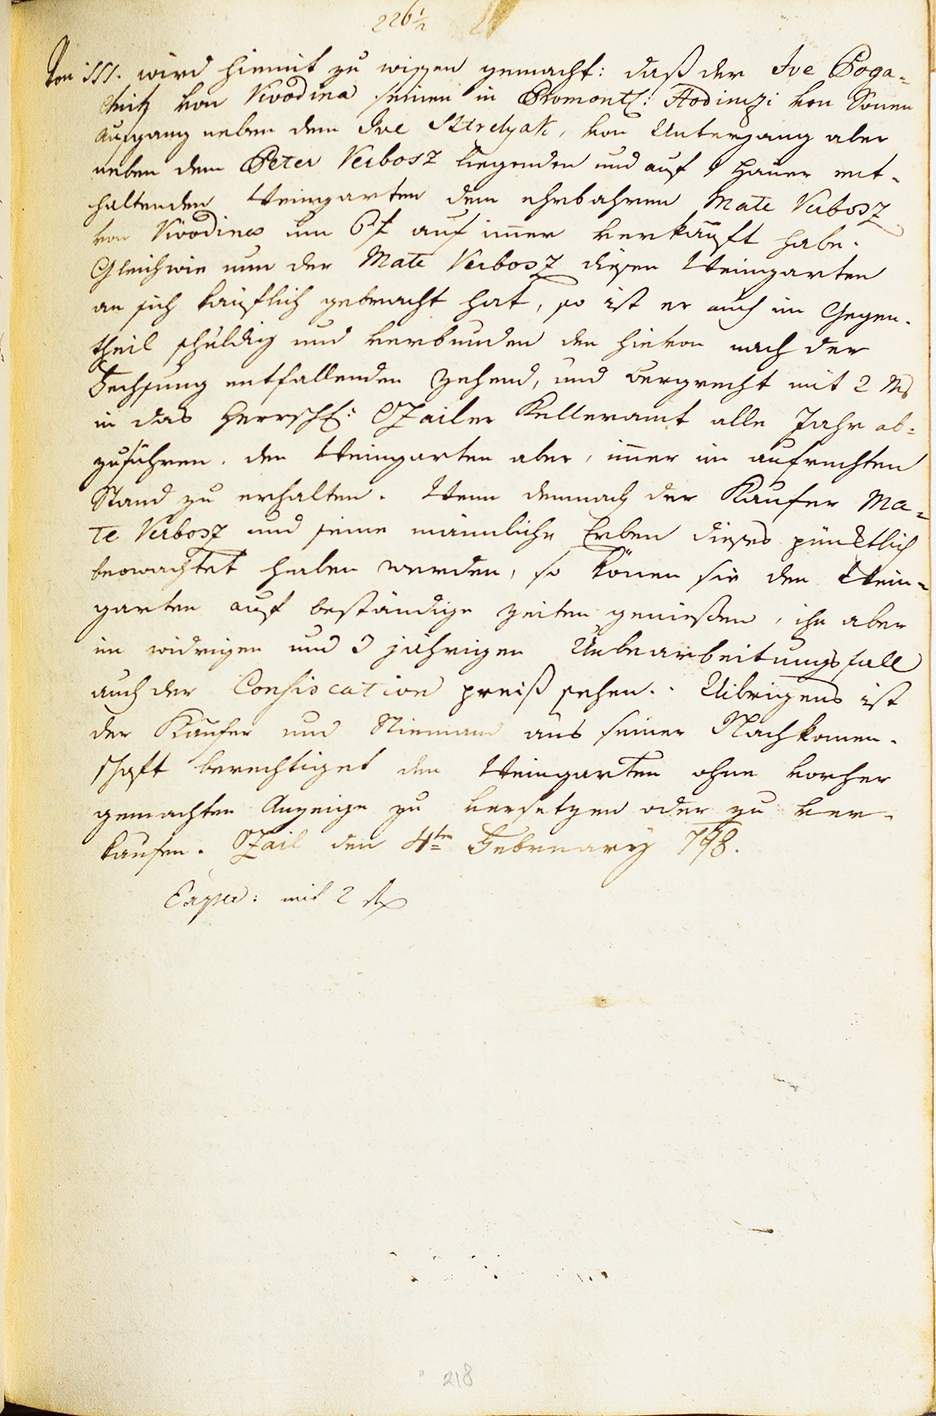 226 1/2
Von 
wird hiemit zu wissen gemacht: daß der Ive Poga-
von Vivodina seinen in Promont: von Sonen
Aufgang neben dem Ive Sztrelyak, von Untergang aber
neben dem Peter Verbosz liegenden und auf Hauer ent-
haltenden Weingarten dem ehrbahren Mate Verbosz
von Vivodina um 6 f auf im̄er verkäuft habe.
Gleichwie nun der Mate Verbosz diesen Weingarten
an sich käuflich gebracht hat, so ist er auch im Gegen-
theil schuldig und verbunden den hievon nach der
Fechsung entfallenden Zehend, und Bergrecht mit 2
in das Herrschf: Szailer Kelleramt alle Jahr ab-
zuführen. den Weingarten aber, im̄er im aufrechten
Stand zu erhalten. Wenn demnach der Käufer Ma-
te Verbosz und seine mänliche Erben dieses pünktlich
beowachtet haben werden, so könen sie den Wein-
garten auf beständige Zeiten genießen, ihn aber
im widrigen und 3 jährigen Unbearbeitungsfall
auch der Confiscation preiß sehen. Uibrigens ist
der Käufer und Niemand aus seiner Nachkomen-
schaft berechtiget den Weingarten ohne vorher
gemachten Anzeige zu versetzen oder zu ver-
kaufen. Szail den 4ten February 798.
Exped: mit 2
218